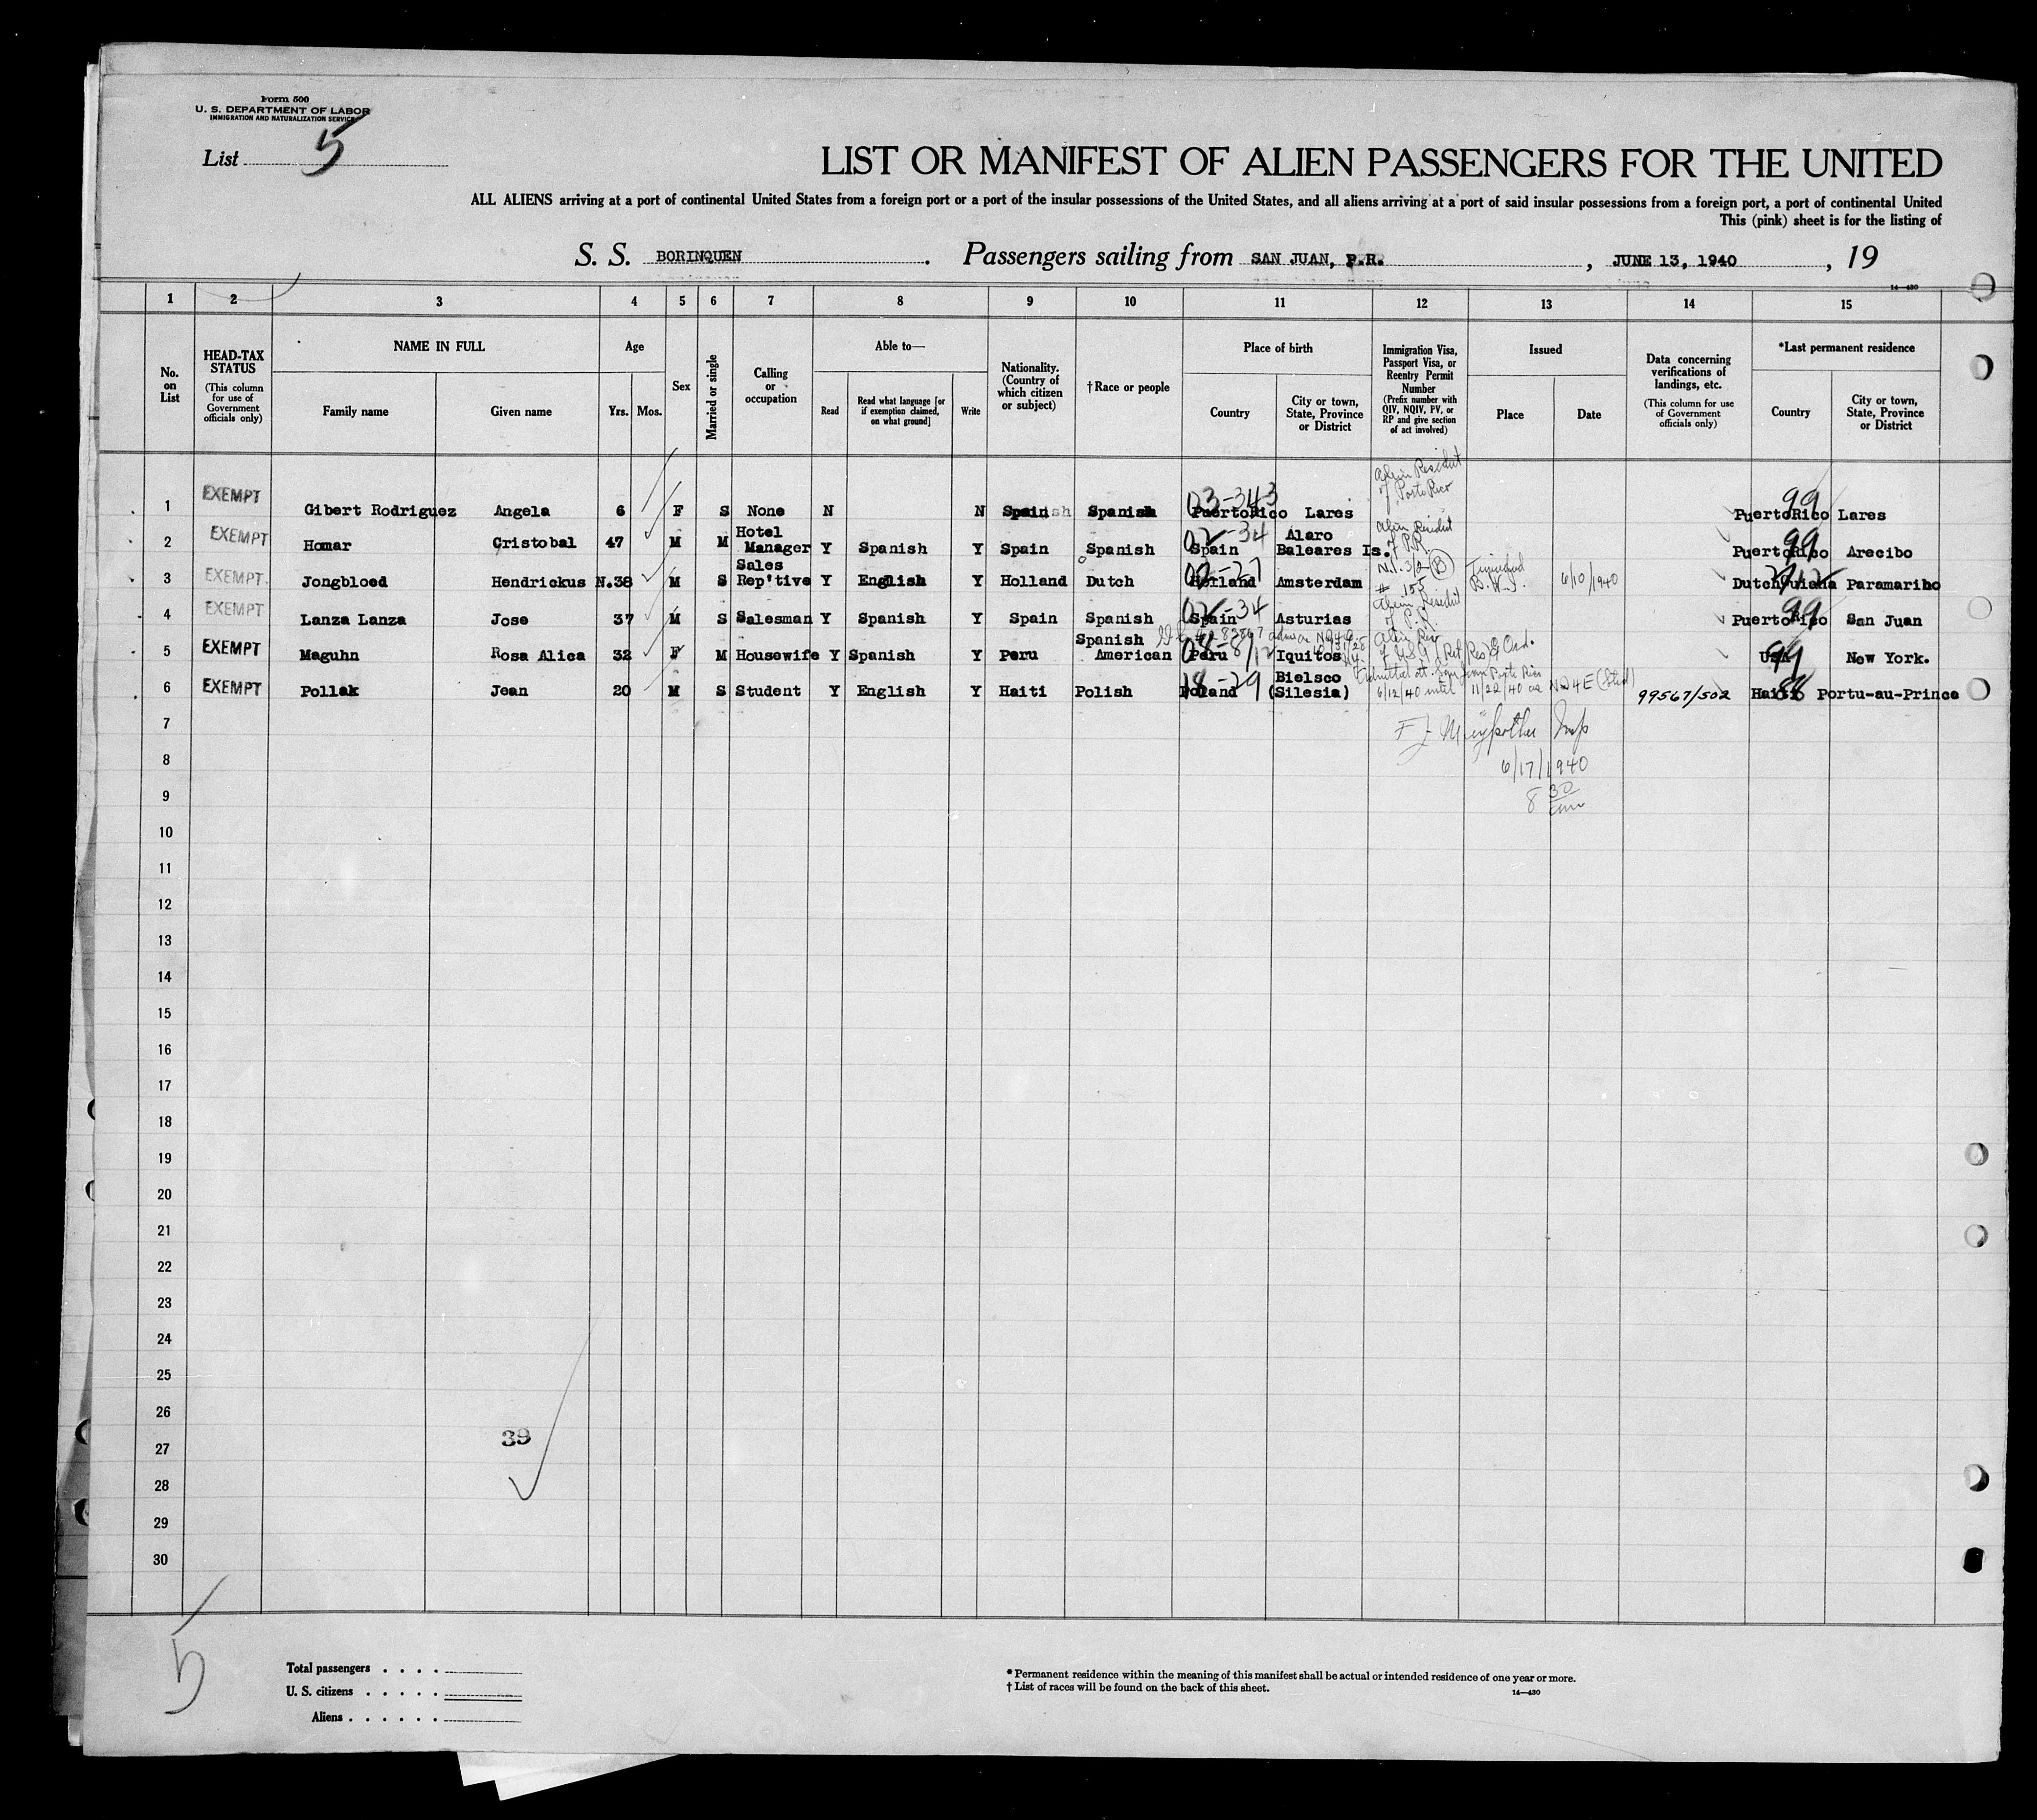 Form 500
U. S. DEPARTMENT OF LABOR
IMMIGRATION AND NATURALIZATION SERVICE
List 5
LIST OR MANIFEST OF ALIEN PASSENGERS FOR THE UNITED
ALL ALIENS arriving at a port of continental United States from a foreign port or a port of the insular possessions of the United States, and all aliens arriving at a port of said insular possessions from a foreign port, a port of continental United
This (pink) sheet is for the listing of
S. S. BORINQUEN . Passengers sailing from SAN JUAN, P.R. , JUNE 13, 1940 , 19
14—430
1 2 3 4 5 6 7 8 9 10 11 12 13 14 15
No. on List
HEAD-TAX STATUS (This column for use of Government officials only)
NAME IN FULL
Family name Given name
Age
Yrs. Mos.
Sex
Married or single
Calling or occupation
Able to—
Read Read what language [or if exemption claimed, on what ground] Write
Nationality. (Country of which citizen or subject)
†Race or people
Place of birth
Country City or town, State, Province or District
Immigration Visa, Passport Visa, or Reentry Permit Number (Prefix number with QIV, NQIV, PV, or RP and give section of act involved)
Issued
Place Date
Data concerning verifications of landings, etc. (This column for use of Government officials only)
*Last permanent residence
Country City or town, State, Province or District
1 EXEMPT Gibert Rodriguez Angela 6 F S None N N Spanish Spanish 03-343 PuertoRico Lares Alien Resident of Porto Rico 99 PuertoRico Lares
2 EXEMPT Homar Cristobal 47 M M Hotel Manager Y Spanish Y Spain Spanish 02-34 Spain Alaro Baleares Is. Alien Resident of P.R. 99 PuertoRico Arecibo
3 EXEMPT Jongbloed Hendrickus N. 38 M S Sales Rep'tive Y English Y Holland Dutch Holland Amsterdam N.I. 3(2 (B) # 155 Trinidad B.W.I. 6/10/1940 DutchGuiana Paramaribo
4 EXEMPT Lanza Lanza Jose 37 M S Salesman Y Spanish Y Spain Spanish 02-34 Spain Asturias Alien Resident of P.R. 99 PuertoRico San Juan
5 EXEMPT Maguhn Rosa Alica 32 F M Housewife Y Spanish Y Peru Spanish American 08-8/12 Peru Iquitos Alien of USA 99 USA New York.
6 EXEMPT Pollak Jean 20 M S Student Y English Y Haiti Polish 18-29 Poland Bielsco (Silesia) Admitted at San Juan Porto Rico 6/12/40 until 11/22/40 as NQ4E (Stud) 99567/502 Haiti Portu-au-Prince
7
8 6/17/1940
9 8 30
10
11
12
13
14
15
16
17
18
19
20
21
22
23
24
25
26
27 39
28
29
30
5
Total passengers . . . .
U. S. citizens . . . . .
Aliens . . . . . .
* Permanent residence within the meaning of this manifest shall be actual or intended residence of one year or more.
† List of races will be found on the back of this sheet.
14—430